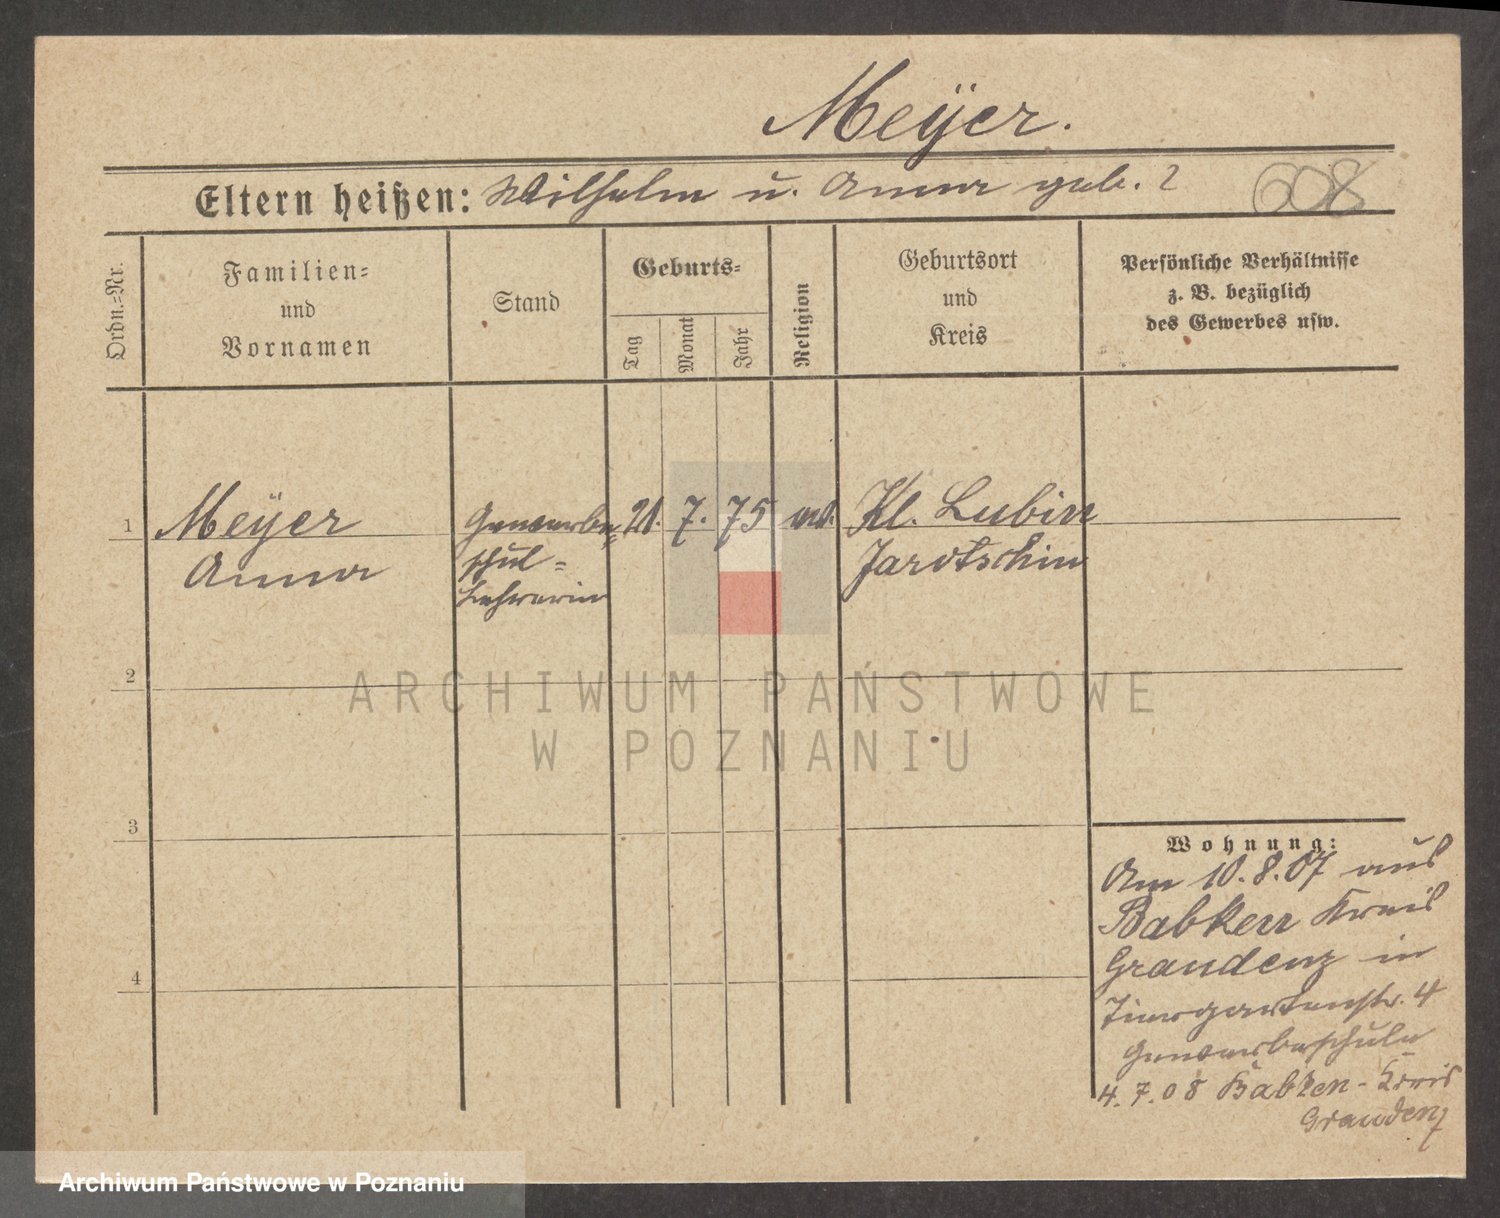 Meÿer.
Eltern heißen: Wilhelm u. Anna geb. ?
608
Ordn.=Nr.
Familien=
und
Vornamen
Stand
Geburts=
Tag
Monat
Jahr
Religion
Geburtsort
und
Kreis
Persönliche Verhältnisse
z. B. bezüglich
des Gewerbes usw.
1
Meÿer
Anna
Gewerbe=
schul=
Lehrerin
21. 7. 75
ev.
Kl. Lubin
Jarotschin
2
3
4
ARCHIWUM PAŃSTWOWE
W POZNANIU
Wohnung:
Am 10.8.07 aus
Babken Kreis
Graudenz in
Tiergartenstr. 4
Gewerbeschule
4.7.08 Babken-Kreis
Graudenz
Archiwum Państwowe w Poznaniu